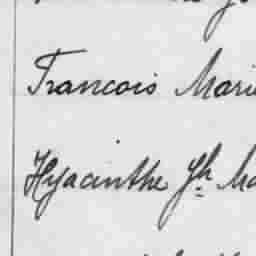 Francois Marie
Hyacinthe Jh Ma